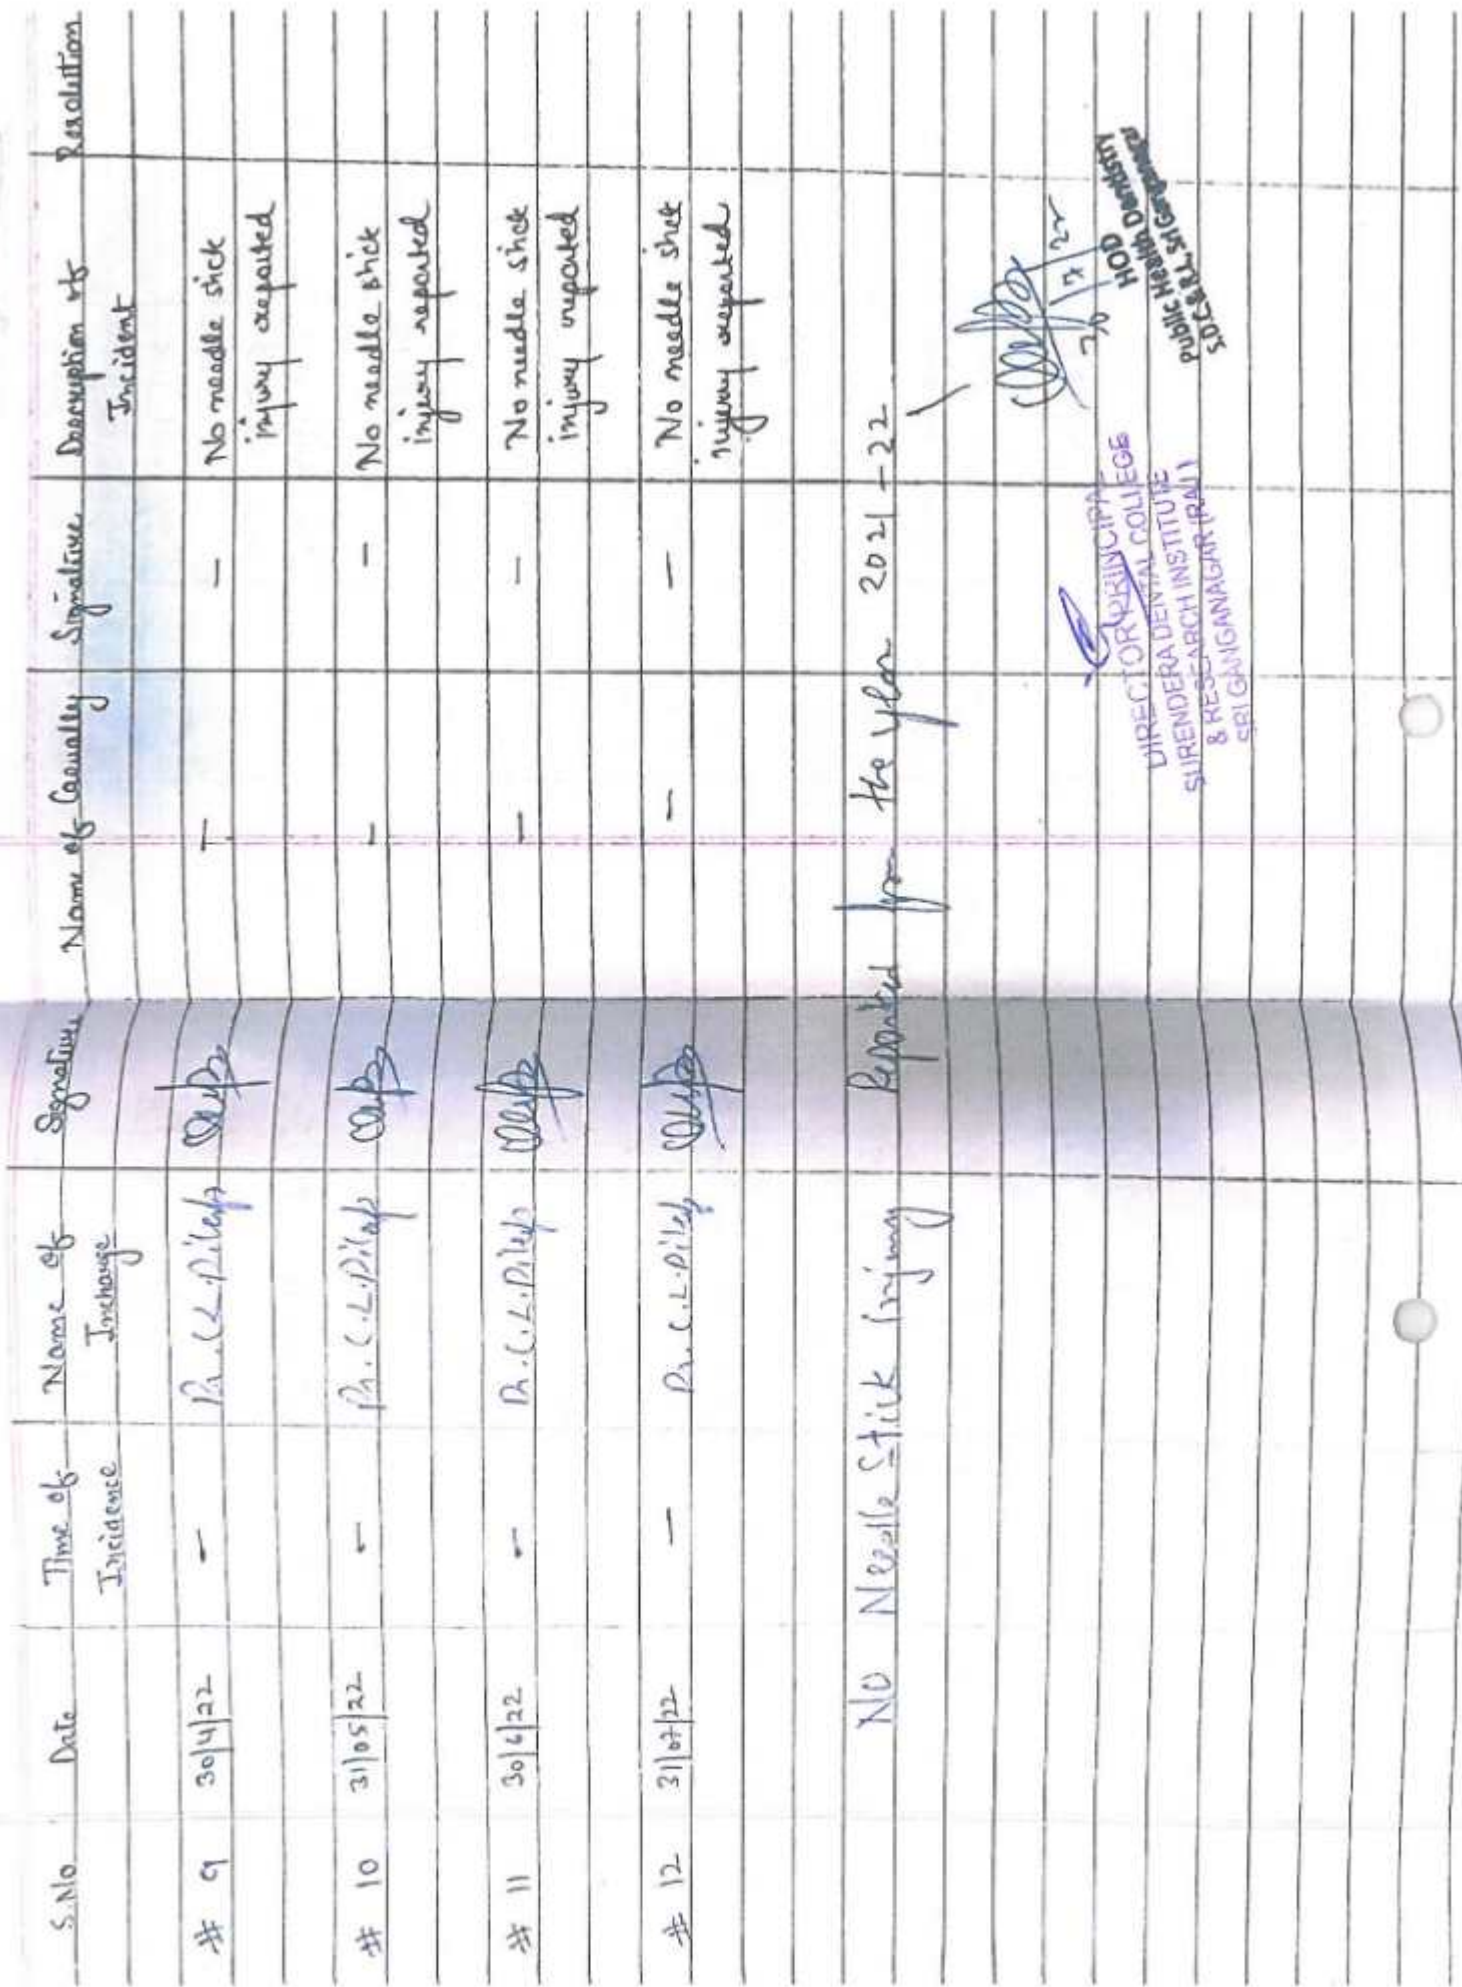 S.No Date Time of Incidence Name of Incharge Signature Name of Casualty Signature Description of Incident Resolution
# 9 30/4/22 - Dr. C.L. Dileep - - No needle stick
injury reported
# 10 31/05/22 - Dr. C.L. Dileep - - No needle stick
injury reported
# 11 30/6/22 - Dr. C.L. Dileep - - No needle stick
injury reported
# 12 31/07/22 - Dr. C.L. Dileep - - No needle stick
injury reported
No Needle Stick Injury Reported for the year 2021-22
HOD
Public Health Dentistry
S.D.C.& R.I., Sri Ganganagar
DIRECTOR PRINCIPAL
SURENDERA DENTAL COLLEGE
& RESEARCH INSTITUTE
SRI GANGANAGAR (RAJ.)